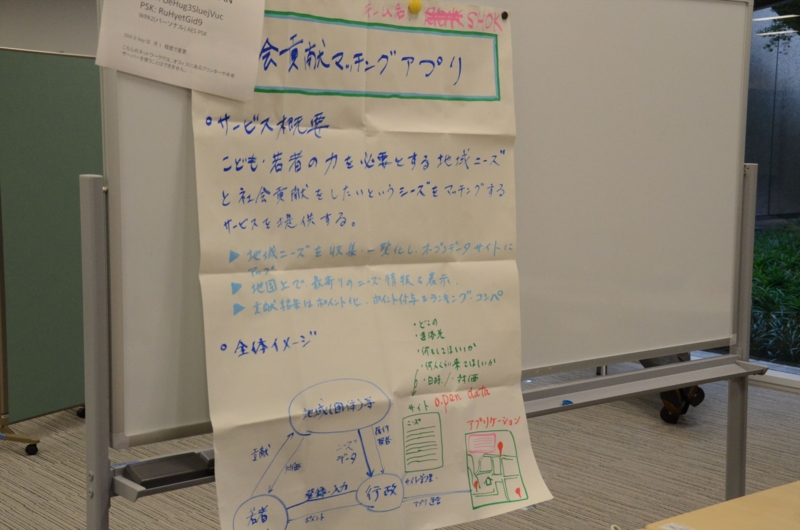 PSK: RuHyetGid9
WPA2(パーソナル) AES PSK
チーム名 SHOK
会貢献マッチングアプリ
○サービス概要
こども・若者の力を必要とする地域ニーズ
と社会貢献をしたいというシーズをマッチングする
サービスを提供する。
▶ 地域ニーズを収集・一覧化し、オープンデータサイトに
アップ
▶ 地図上で最寄りのニーズ情報を表示
▶ 貢献結果はポイント化、ポイント付与をランキング、コンペ
○全体イメージ
・どこの
・連絡先
・何をしてほしいか
・何人ぐらい来てほしいか
・日時 / 対価
サイト open data
地域(団体)等
ニーズ
アプリケーション
貢献
対価
ニーズ
データ
若者
登録・入力
ポイント
行政
サイト管理
アプリ運営